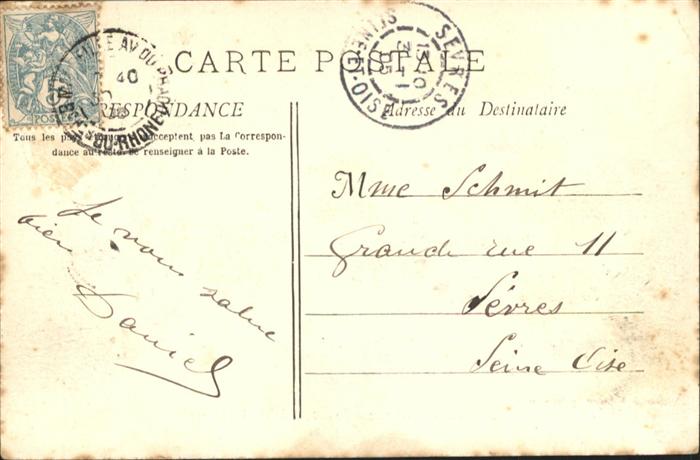 CARTE POSTALE
CORRESPONDANCE
Tous les pays acceptent pas la Correspon-
dance au recto. Se renseigner à la Poste.
Adresse du Destinataire
Je vous salue
bien
Daniel
Mme Schmit
Grande rue 11
Sèvres
Seine Oise
SÈVRES
SEINE-ET-OISE
13
05
POSTES
AV. DU PRADO
B. DU RHONE